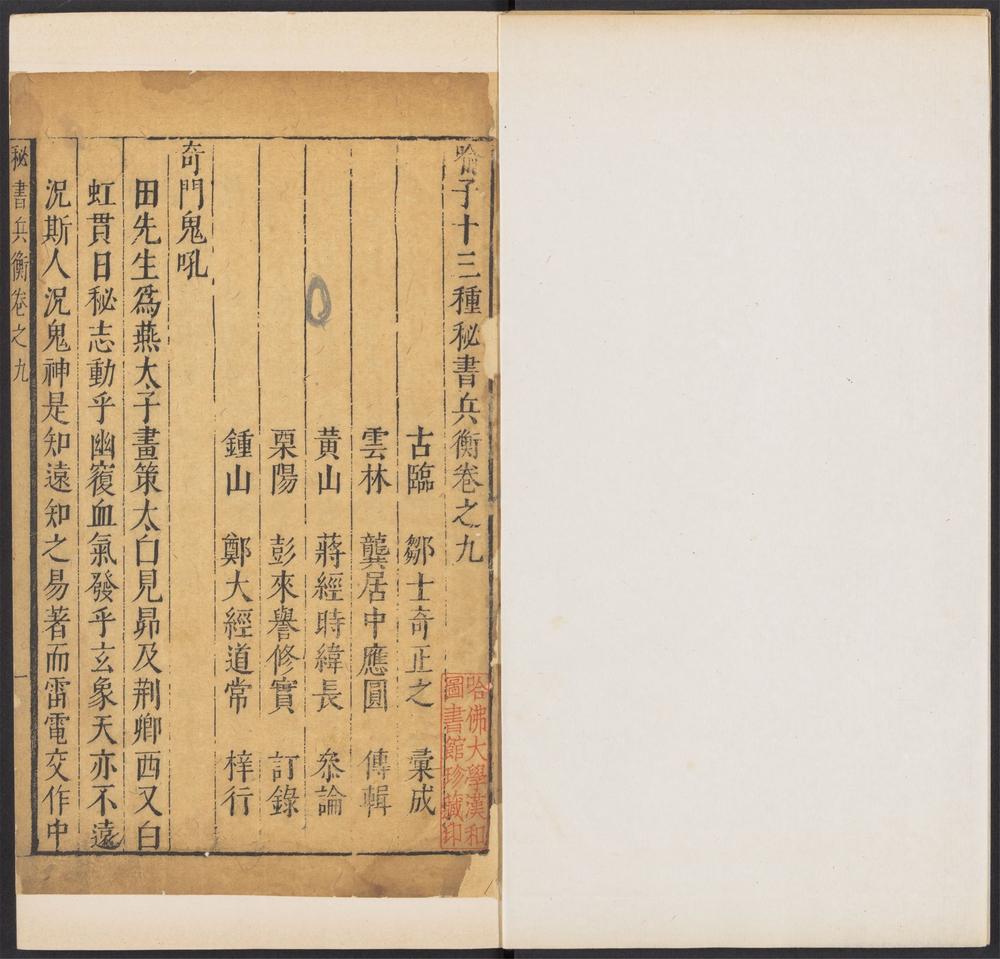 喻子十三種秘書兵衡卷之九
古臨 鄒士奇正之 彙成
雲林 龔居中應圓 傳輯
黃山 蔣經時緯長 叅論
栗陽 彭來譽修實 訂錄
鍾山 鄭大經道常 梓行
奇門鬼吼
田先生爲燕太子畫策太白見昴及荆卿西又白
虹貫日秘志動乎幽窽血氣發乎玄象天亦不遠
況斯人況鬼神是知遠知之易著而雷電交作中
秘書兵衡卷之九
一
哈佛大學漢和
圖書館珍藏印